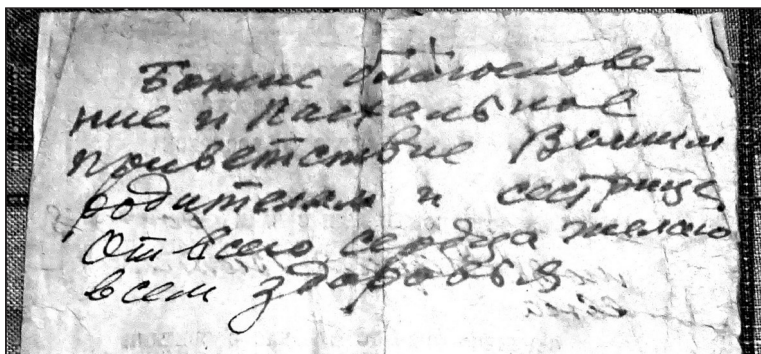 Божие благослове–
ние и пасхальное
приветствие Вашим
родителям и сестрице.
От всего сердца желаю
всем здоровья